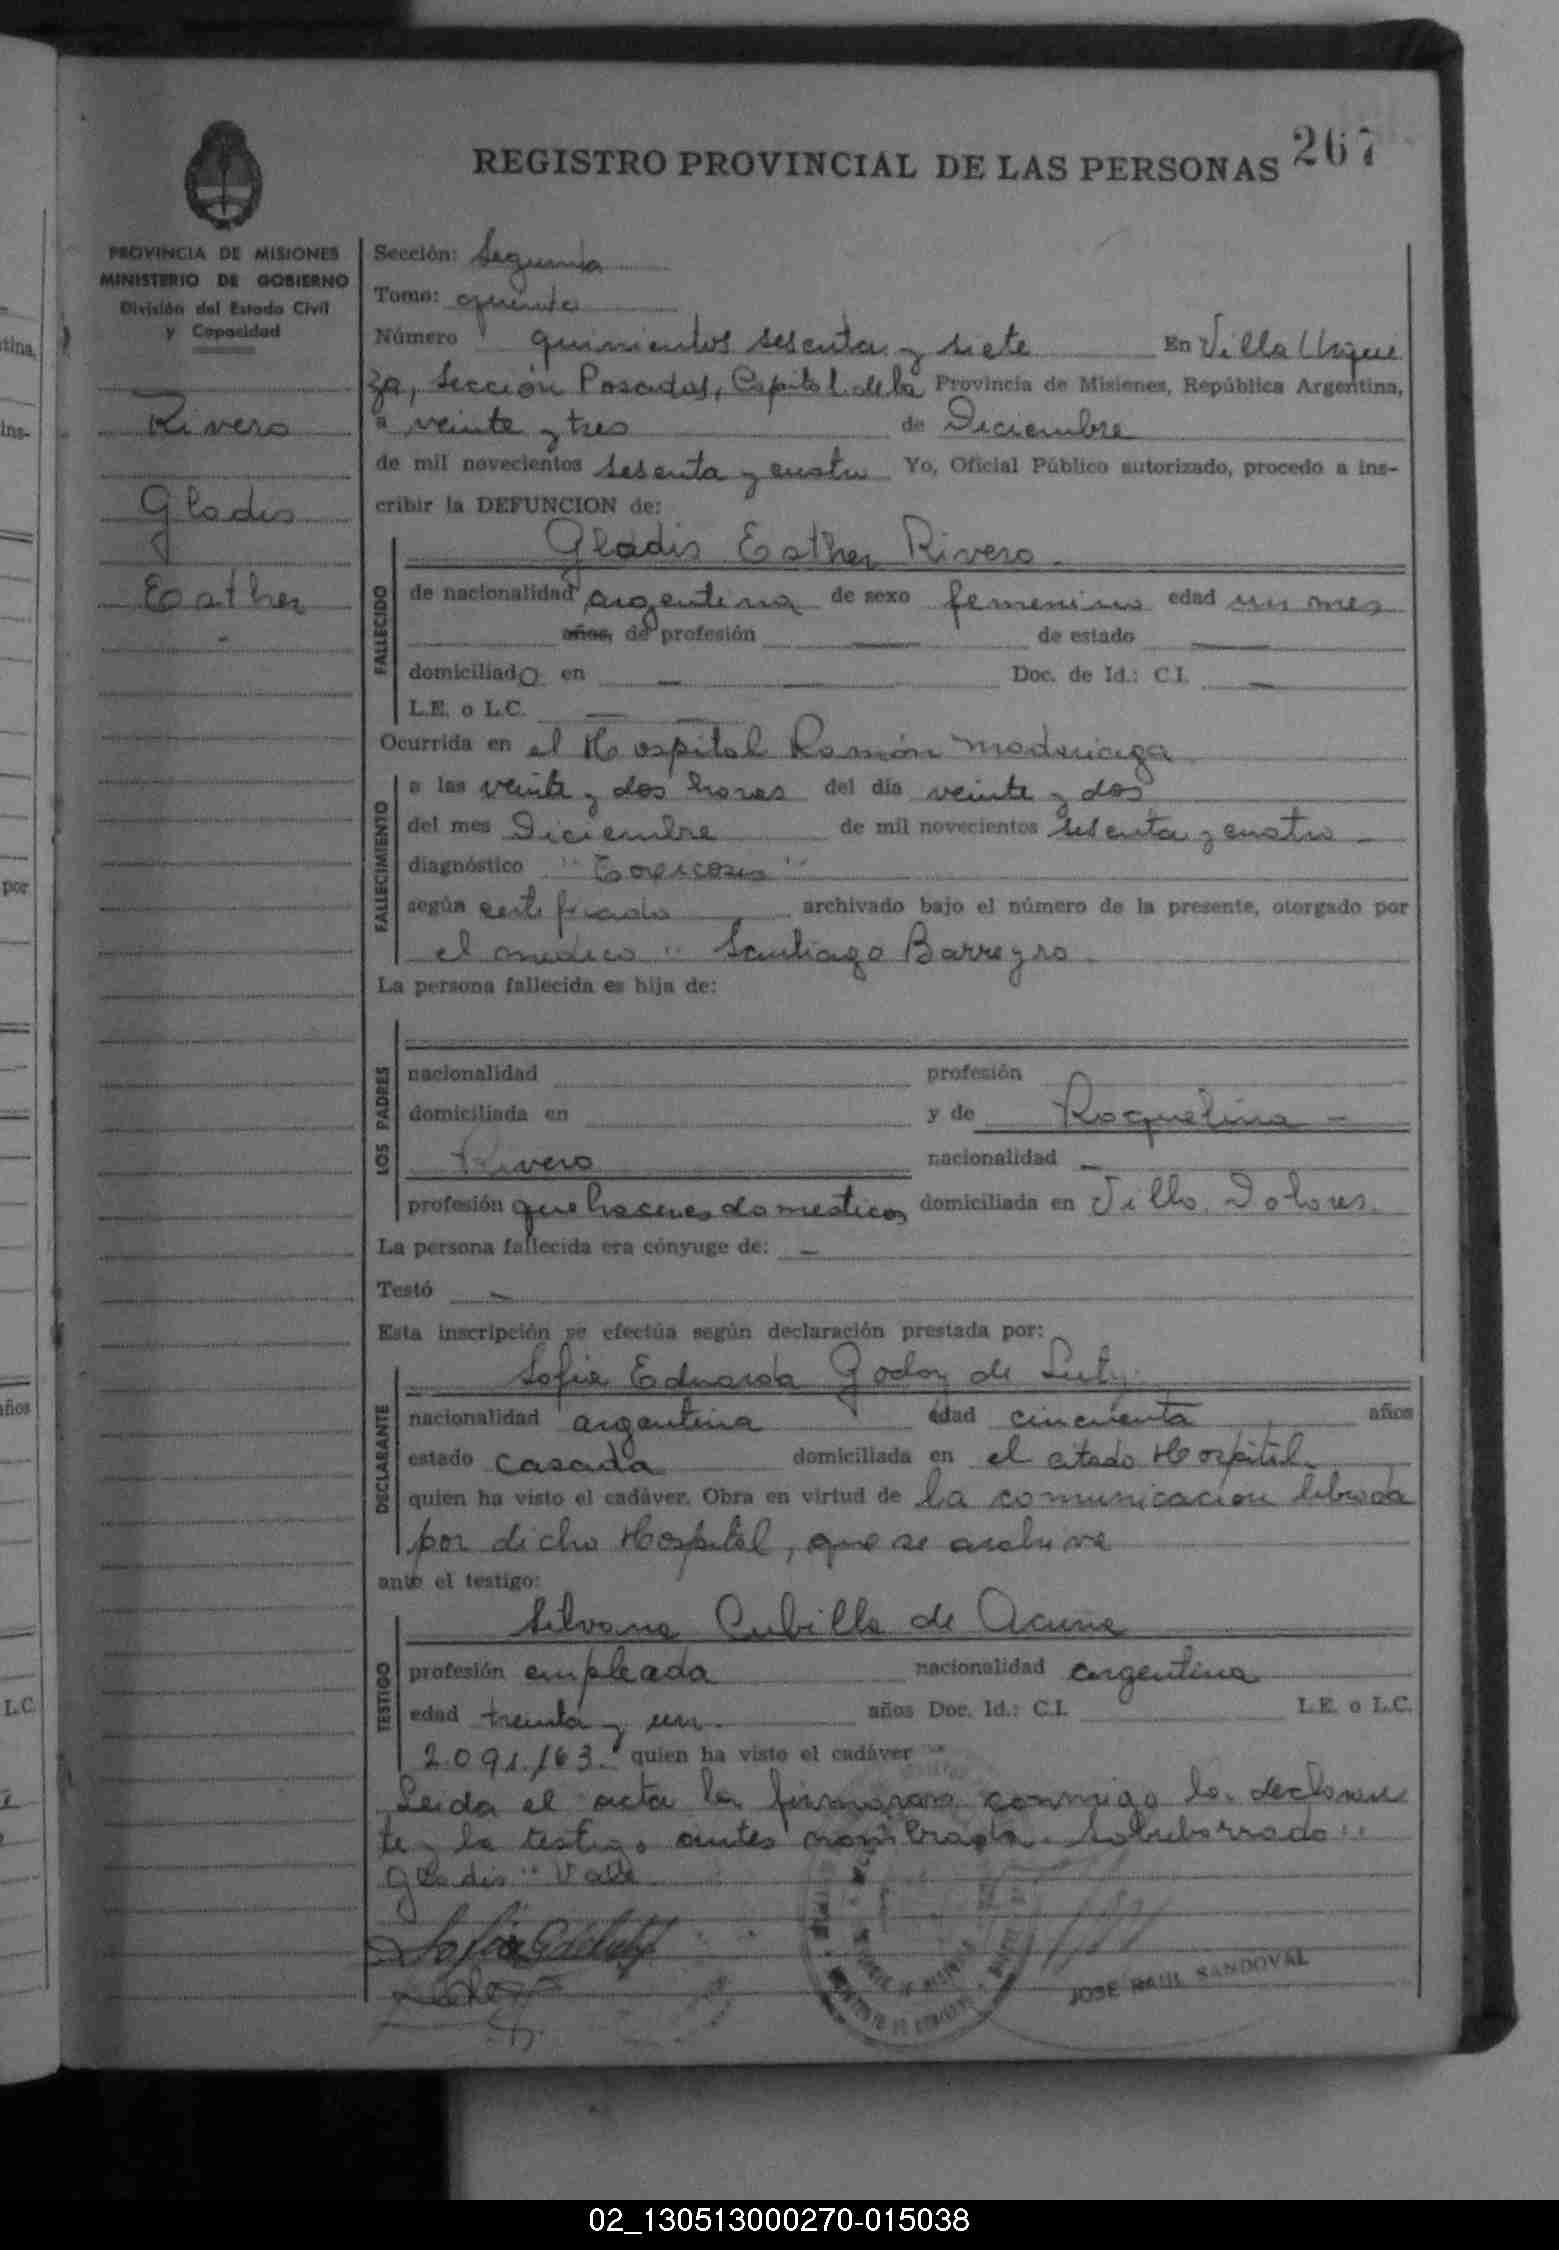 267
REGISTRO PROVINCIAL DE LAS PERSONAS
PROVINCIA DE MISIONES
MINISTERIO DE GOBIERNO
División del Estado Civil
y Capacidad
Rivero
Gladis
Esther
Sección: Segunda
Tomo: quinto
Número quinientos sesenta y siete En Villa Urqui
za, Sección Posadas, Capital de la Provincia de Misiones, República Argentina,
a veinte y tres de Diciembre
de mil novecientos sesenta y cuatro Yo, Oficial Público autorizado, procedo a ins-
cribir la DEFUNCION de:
Gladis Esther Rivero
FALLECIDO
de nacionalidad argentina de sexo femenino edad un mes
años, de profesión — de estado —
domiciliado en — — Doc. de Id.: C.I. —
L.E. o L.C. — —
Ocurrida en el Hospital Ramón Madariaga
FALLECIMIENTO
a las veinte y dos horas del día veinte y dos
del mes Diciembre de mil novecientos sesenta y cuatro —
diagnóstico "Toxicosis"
según certificado archivado bajo el número de la presente, otorgado por
el medico Santiago Barreyro
La persona fallecida es hija de:
LOS PADRES
nacionalidad profesión
domiciliada en y de Roquelina —
Rivero nacionalidad —
profesión quehaceres domesticos domiciliada en Villa Dolores.
La persona fallecida era cónyuge de: —
Testó —
Esta inscripción se efectúa según declaración prestada por:
Sofia Eduarda Godoy de
DECLARANTE
nacionalidad argentina edad cincuenta años
estado casada domiciliada en el citado Hospital.
quien ha visto el cadáver. Obra en virtud de la comunicacion librada
por dicho Hospital, que se archiva
ante el testigo:
Silvana Cubilla de Acuña
TESTIGO
profesión empleada nacionalidad argentina
edad treinta y un años Doc. Id.: C.I. L.E. o L.C.
2.091.163. quien ha visto el cadáver
Leida el acta la firmaran conmigo la declaran
te y la testigo antes nombrada. Sobreborrado:
Gladis: Vale
JOSE RAUL SANDOVAL
02_130513000270-015038